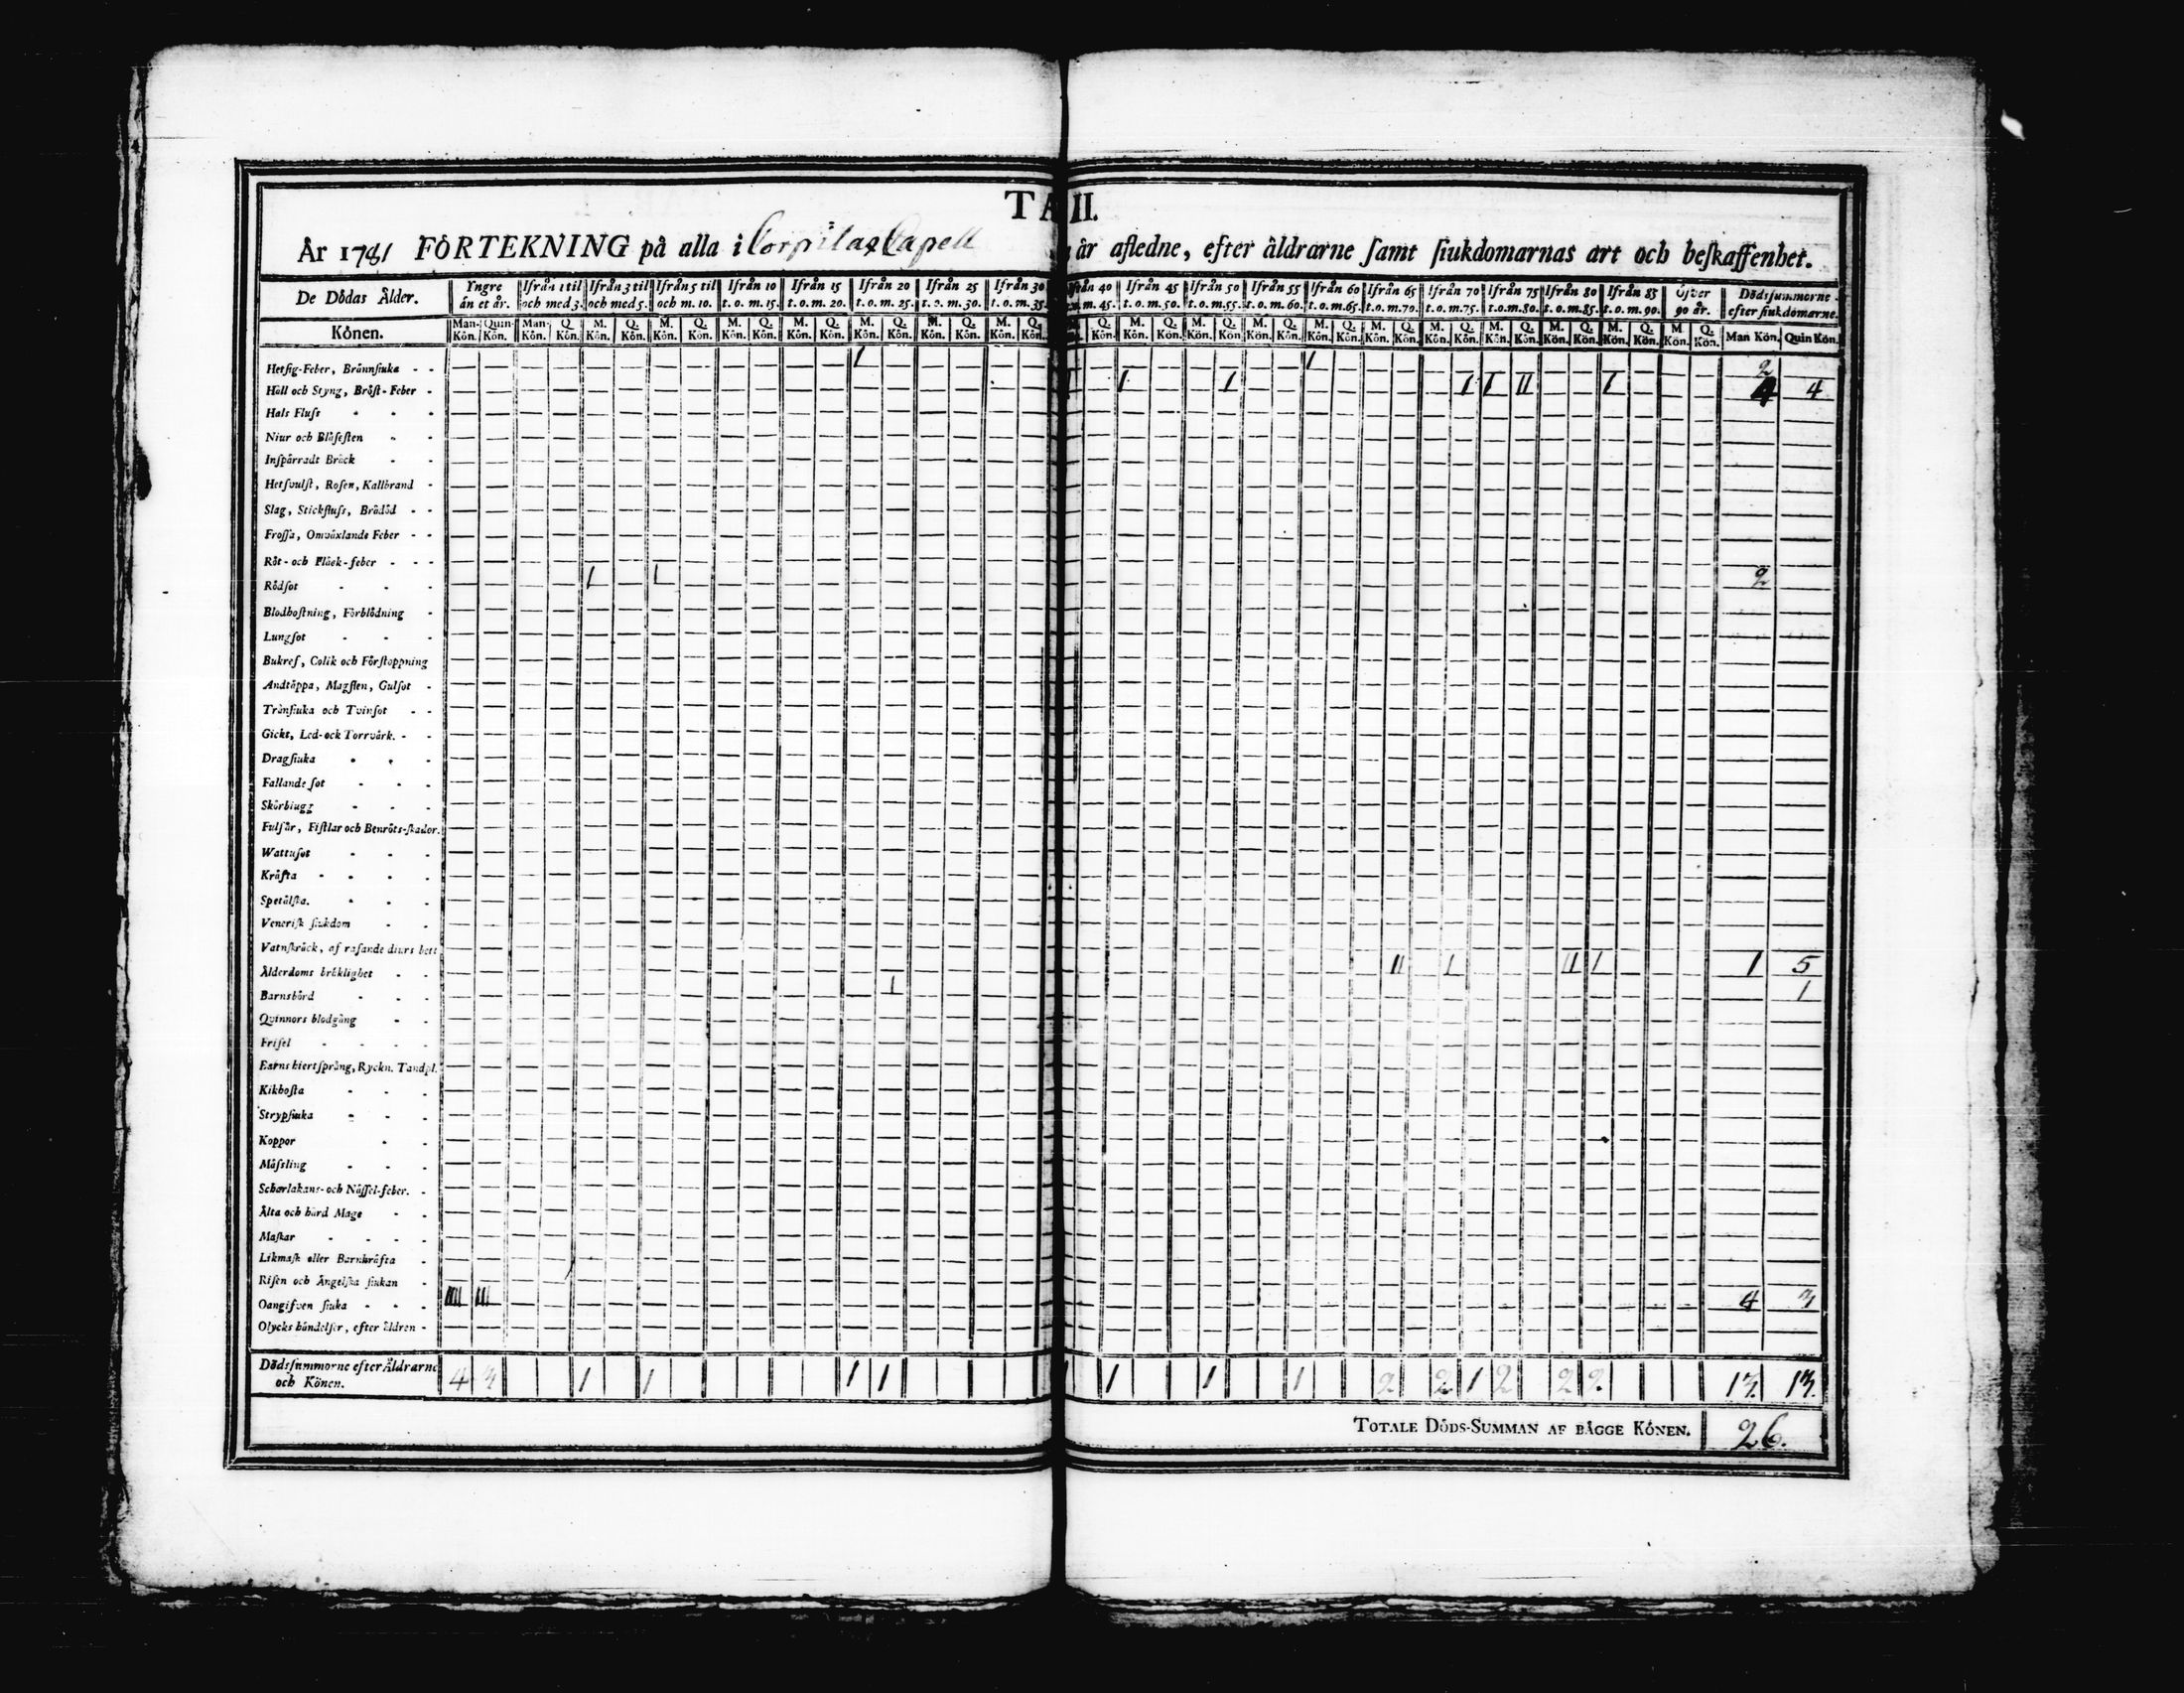 TA II.
År 1781 FÖRTEKNING på alla i Corpilax Capell är afledne, efter åldrarne samt siukdomarnas art och beskaffenhet.
De Dödas Ålder. Yngre än et år. Ifrån 1 til och med 3. Ifrån 3 til och med 5. Ifrån 5 til och m. 10. Ifrån 10 t. o. m. 15. Ifrån 15 t. o. m. 20. Ifrån 20 t. o. m. 25. Ifrån 25 t. o. m. 30. Ifrån 30 t. o. m. 35. Ifrån 40 t. o. m. 45. Ifrån 45 t. o. m. 50. Ifrån 50 t. o. m. 55. Ifrån 55 t. o. m. 60. Ifrån 60 t. o. m. 65. Ifrån 65 t. o. m. 70. Ifrån 70 t. o. m. 75. Ifrån 75 t. o. m. 80. Ifrån 80 t. o. m. 85. Ifrån 85 t. o. m. 90. Öfver 90 år. Dödssummorne efter siukdomarne.
Könen. Man-Kön. Quin-Kön. Man-Kön. Q. Kön. M. Kön. Q. Kön. M. Kön. Q. Kön. M. Kön. Q. Kön. M. Kön. Q. Kön. M. Kön. Q. Kön. M. Kön. Q. Kön. M. Kön. Q. Kön. Q. Kön. M. Kön. Q. Kön. M. Kön. Q. Kön. M. Kön. Q. Kön. M. Kön. Q. Kön. M. Kön. Q. Kön. M. Kön. Q. Kön. M. Kön. Q. Kön. M. Kön. Q. Kön. M. Kön. Q. Kön. M. Kön. Q. Kön. Man Kön. Quin Kön.
Hetsig-Feber, Brännsiuka - - 1 1 2
Håll och Styng, Bröst-Feber - 1 1 1 1 II 1 4 4
Hals Fluss - - -
Niur och Blåsesten - -
Inspärradt Bråck - -
Hetsvulst, Rosen, Kallbrand -
Slag, Stickfluss, Brådöd - -
Frossa, Omväxlande Feber - -
Röt- och Fläck-feber - - -
Rödsot - - - 1 1 2
Blodhostning, Förblödning -
Lungsot - - -
Bukref, Colik och Förstoppning
Andtäppa, Magsten, Gulsot -
Trånsiuka och Tvinsot - -
Gickt, Led- och Torrvärk. - -
Dragsiuka - - -
Fallande sot - - -
Skörbiugg - - -
Fulsår, Fistlar och Benröts-skador.
Wattusot - - -
Kräfta - - - -
Spetälska. - - -
Venerisk siukdom - -
Vatnskräck, af rasande diurs bett
Ålderdoms bräklighet - - II 1 II 1 1 5
Barnsbörd - - - 1 1
Quinnors blodgång - -
Frisel - - - -
Barns hiertsprång, Ryckn. Tandpl.
Kikhosta - - -
Strypsiuka - - -
Koppor - -
Mässling - - -
Scharlakans- och Nässel-feber. -
Älta och hård Mage - -
Maskar - - - -
Likmask eller Barnkräfta -
Risen och Ängelska siukan -
Oangifven siuka - - - IIII III 4 3
Olycks händelser, efter äldren -
Dödssummorne efter Åldrarne och Könen. 4 3 1 1 1 1 1 1 1 2 2 1 2 2 2 13. 13.
TOTALE DÖDS-SUMMAN AF BÅGGE KÖNEN. 26.